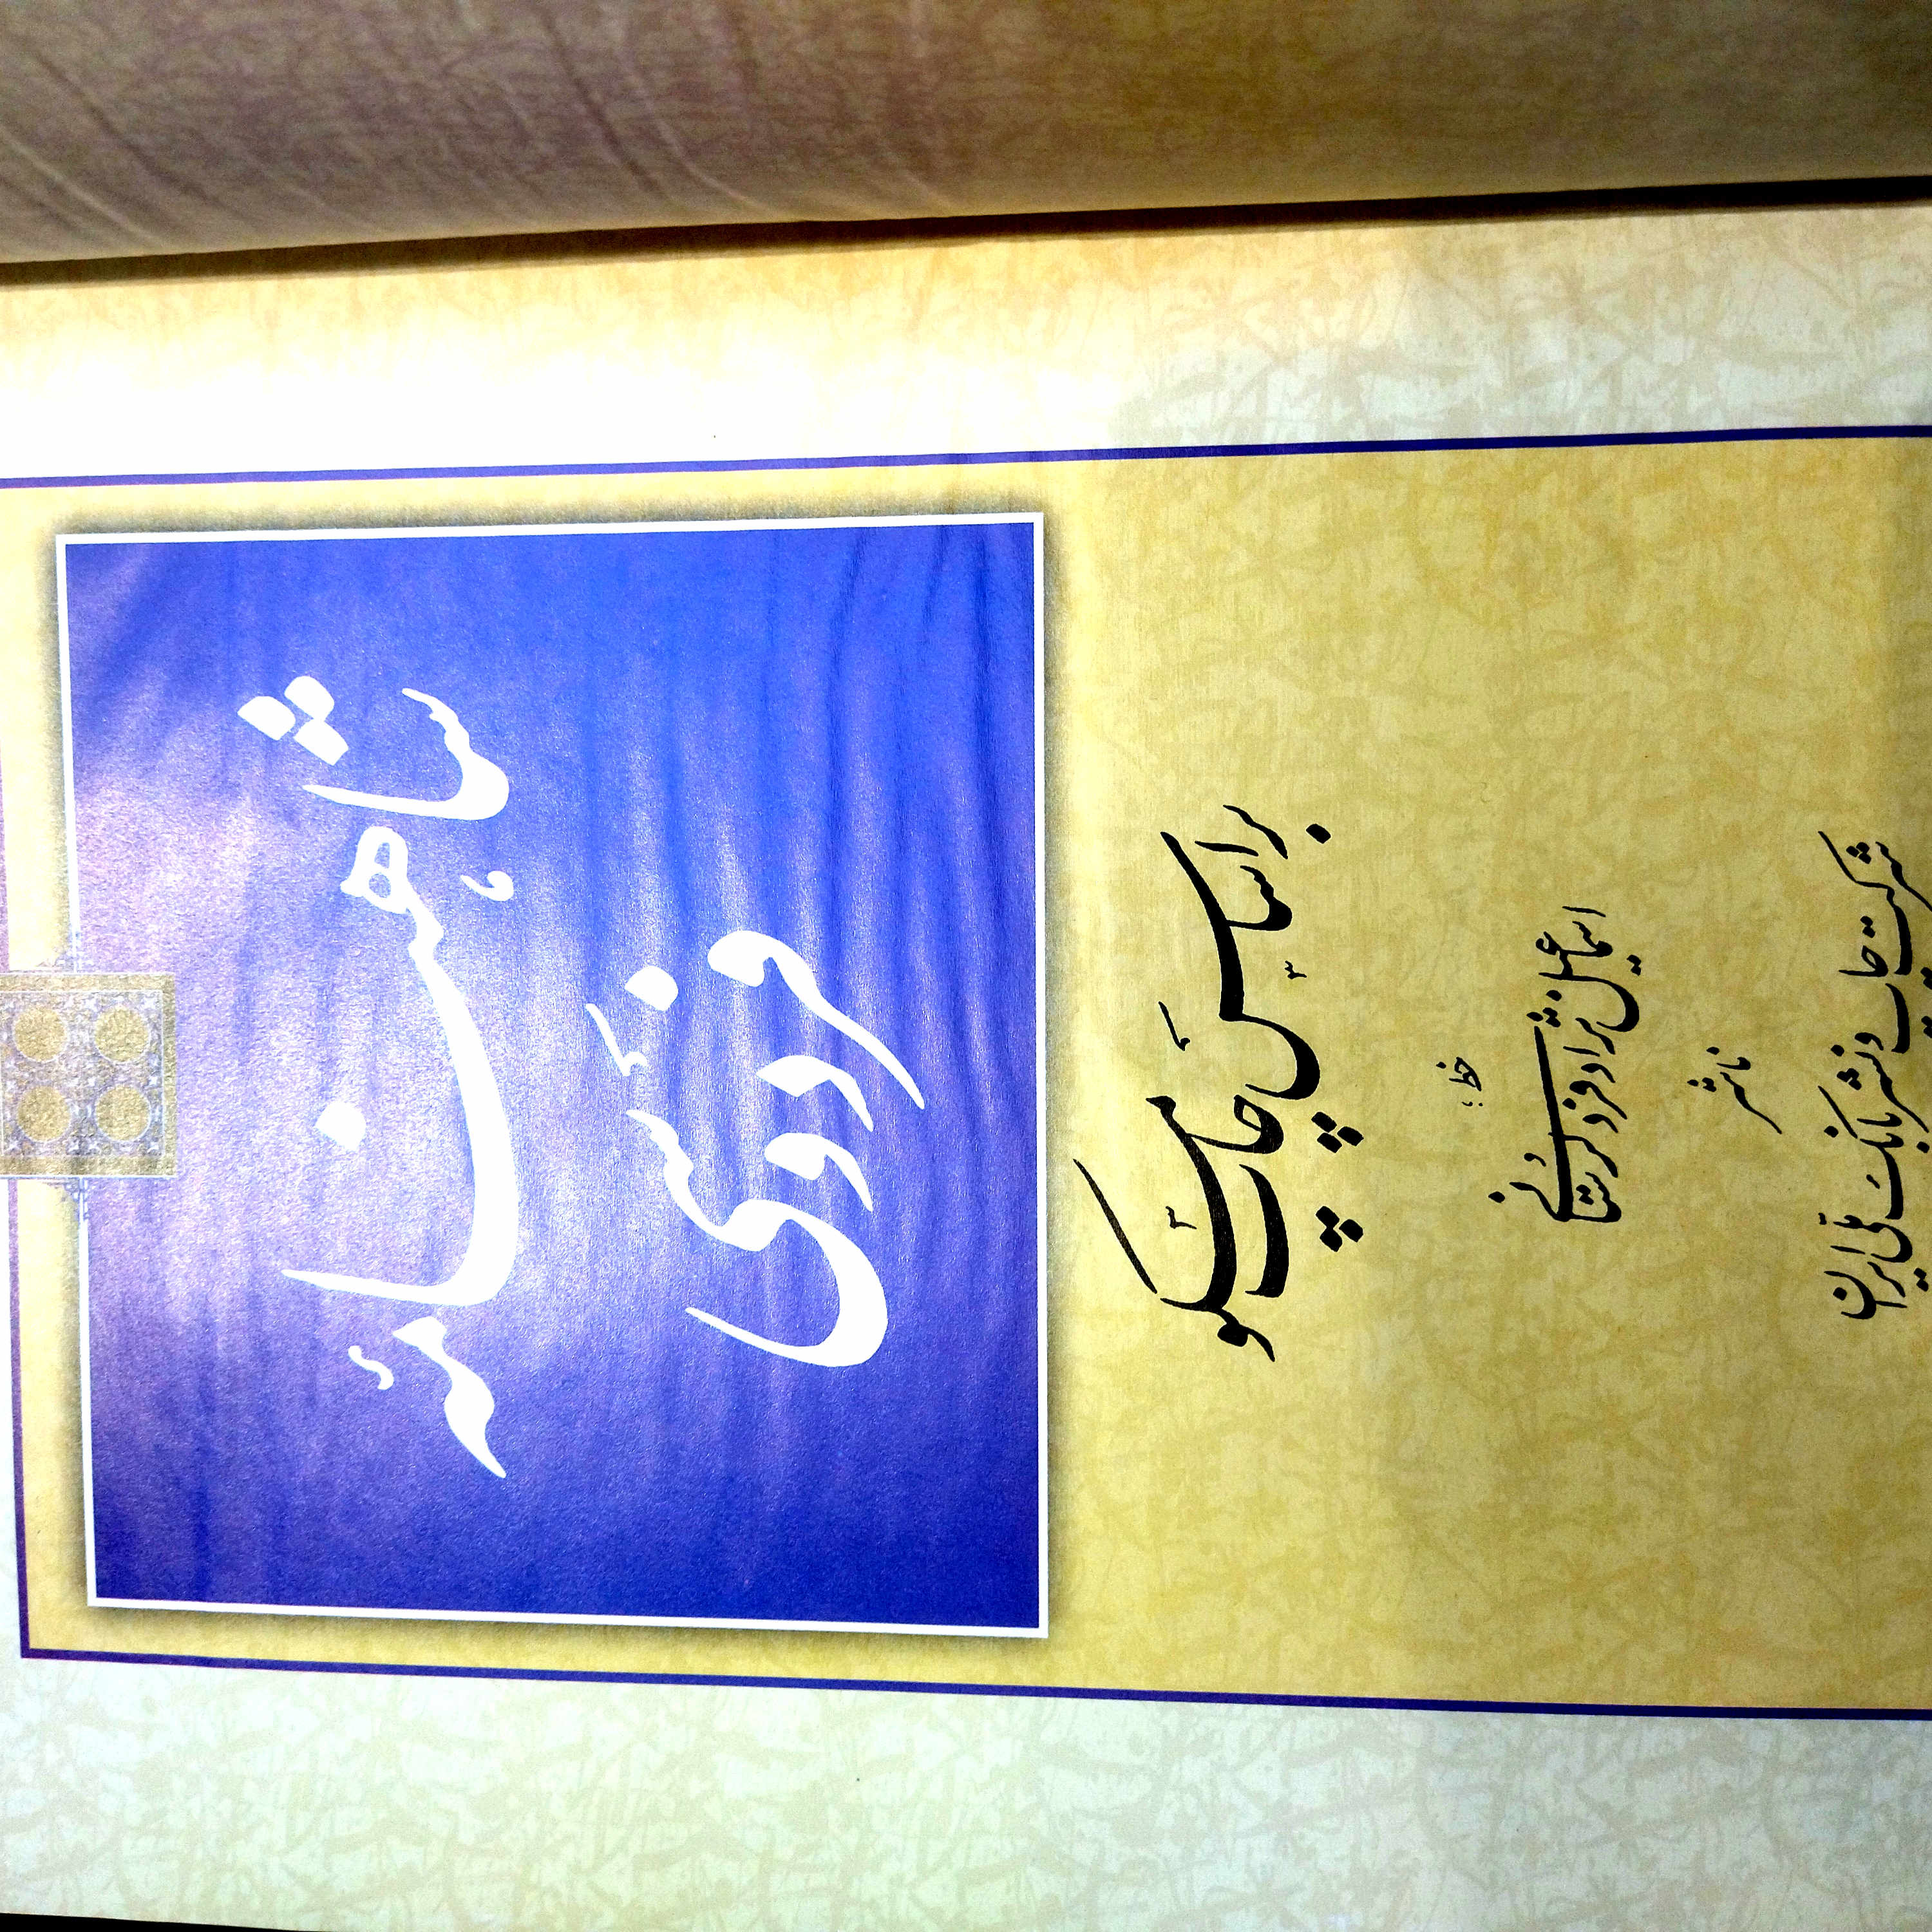 شاهنامه
فردوسی
بر اساس چاپ مسکو
خط:
اسماعیل نژاد فرد لرستانی
ناشر
شرکت چاپ و نشر بانک ملی ایران